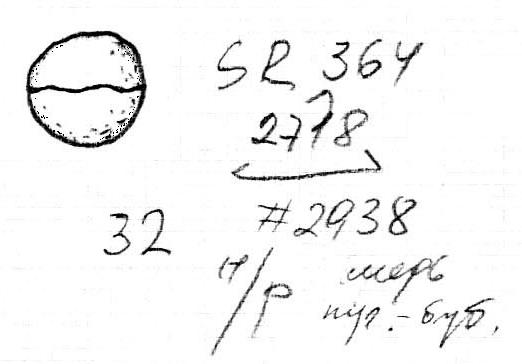 SR 364
2718
32 #2938
н/р медь
пуг.-буб.